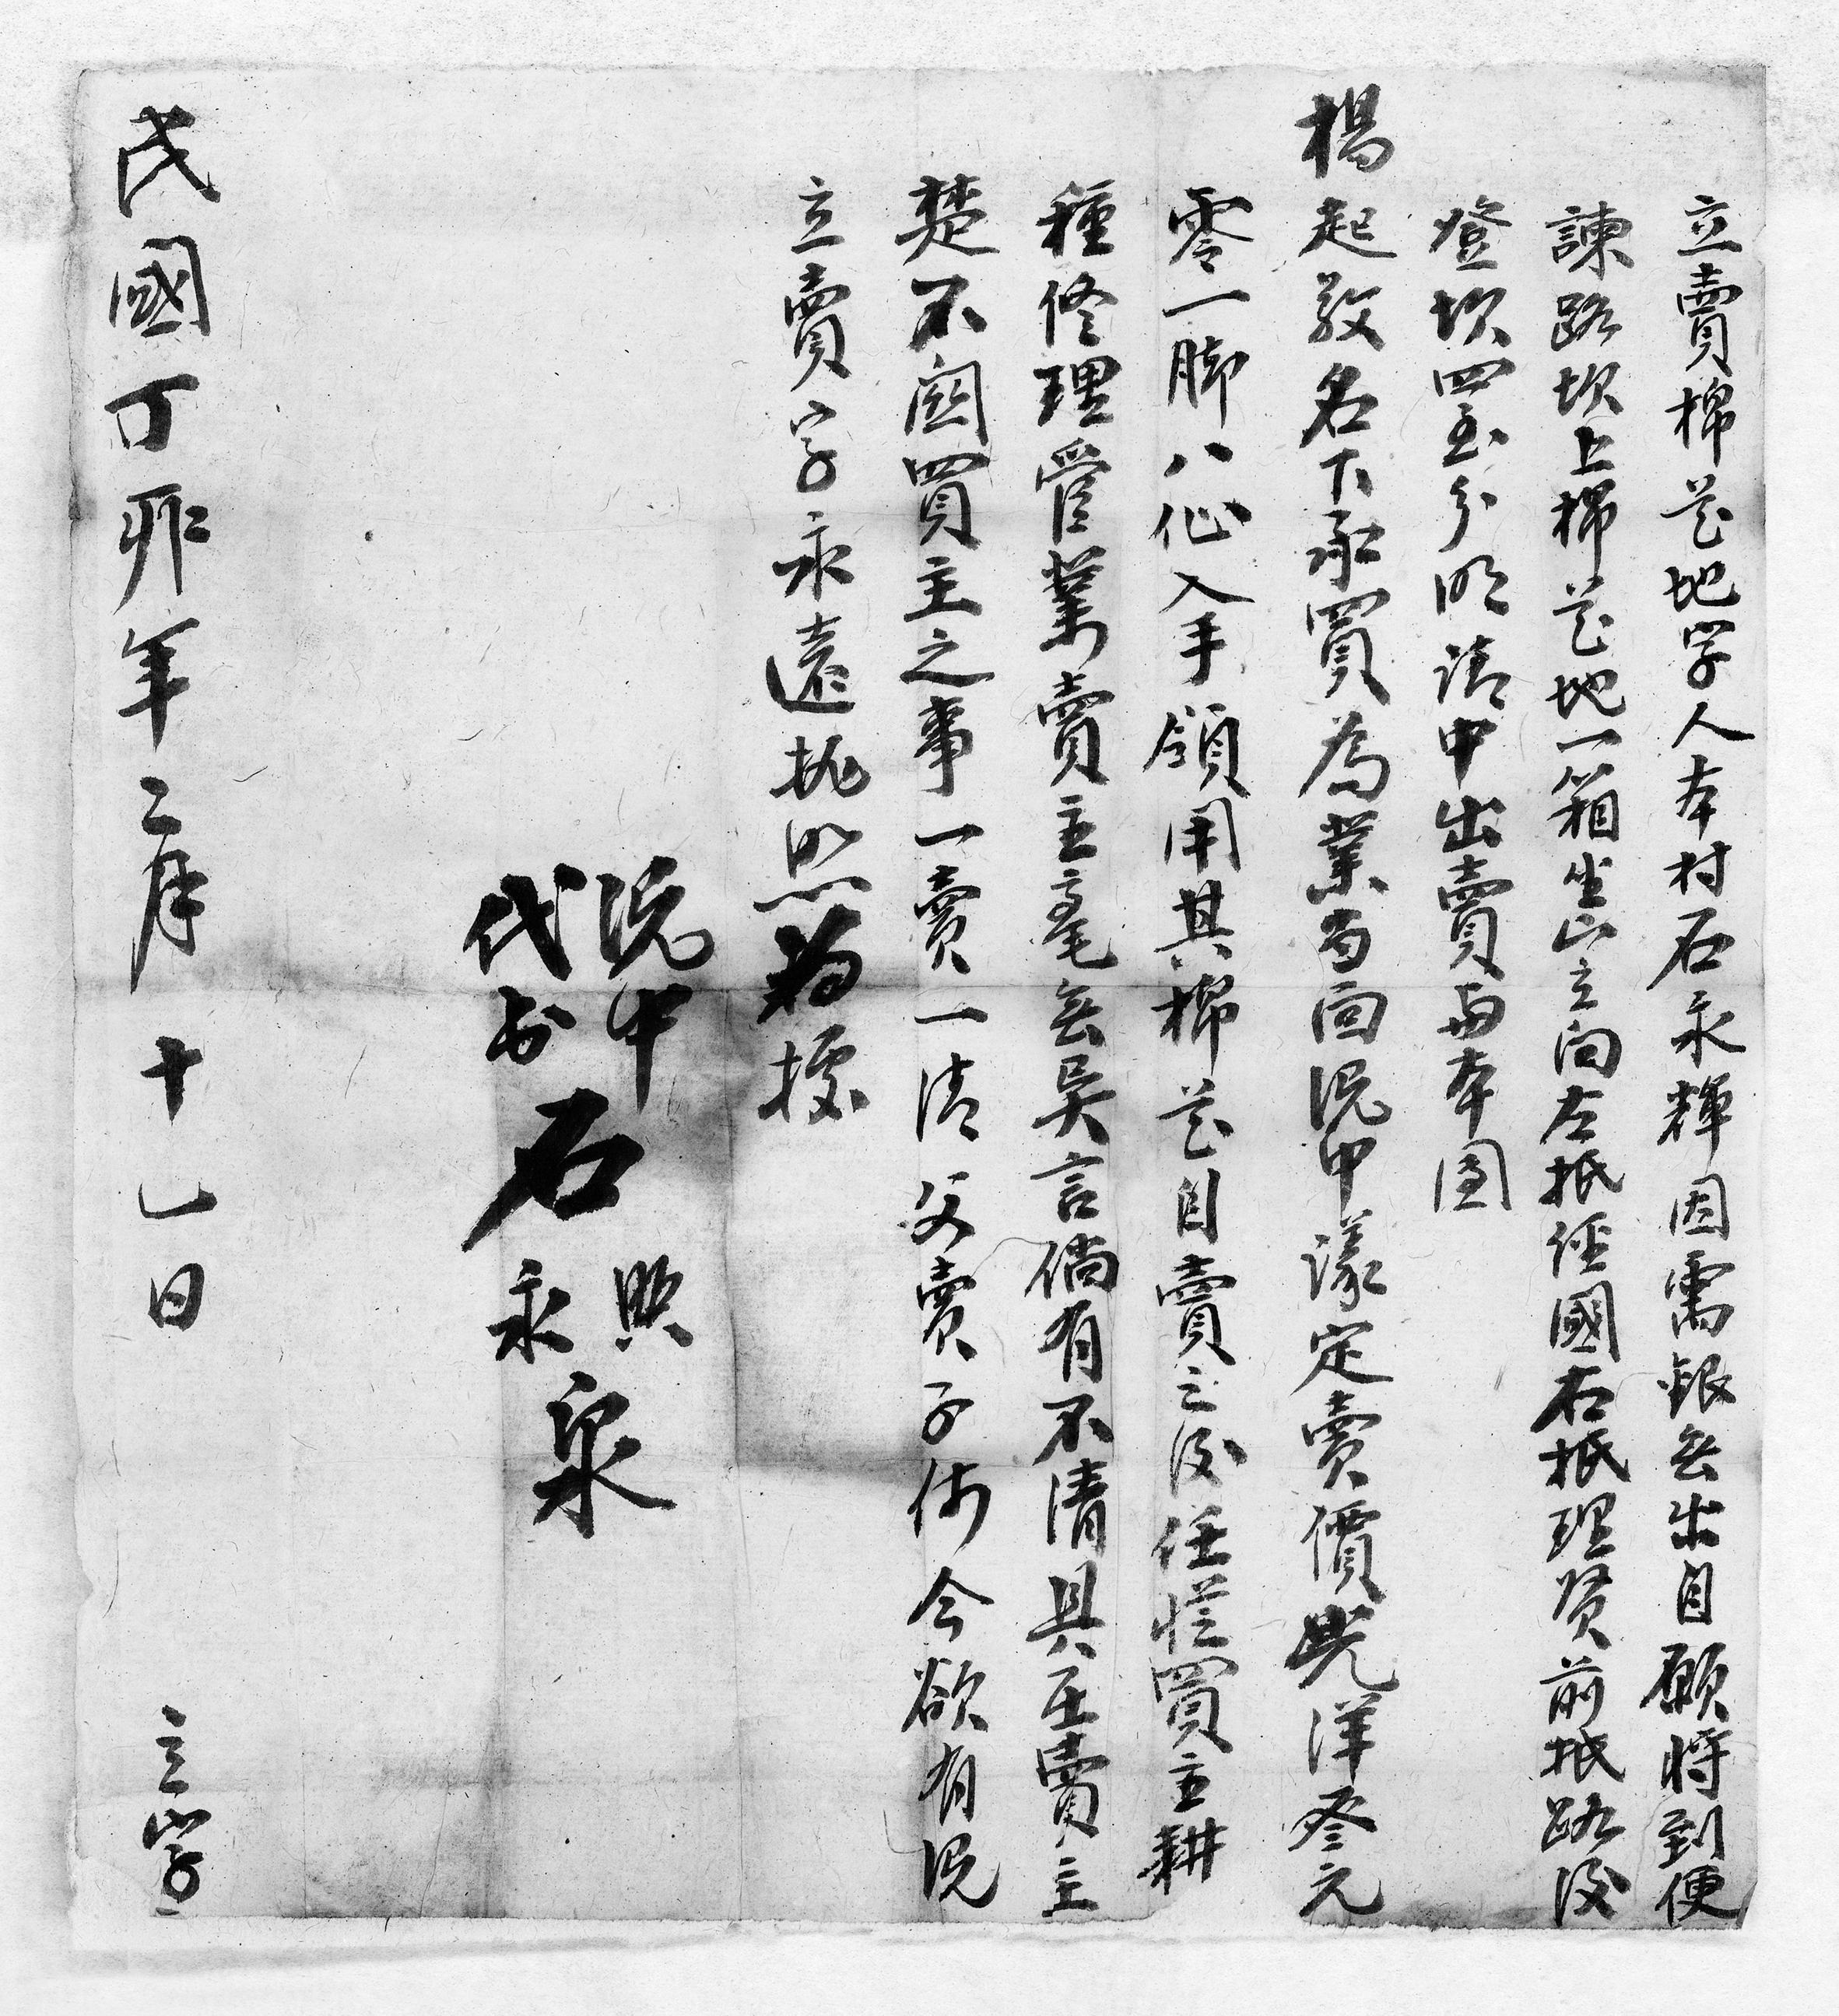 立賣棉花地字人本村石永輝因需銀無出自願將到便
諫路坎上棉花地一箱坐山立向左抵经國右抵理贤前抵路後
燈坎四至分明請中出賣與本團
楊起教名下承買為業當面凭中議定賣價光洋叁元
零一脚八仙入手領用其棉花自賣之後任憑買主耕
種修理管業賣主毫無異言倘有不清具在賣主
楚不関買主之事一賣一清父賣子休今欲有凭
立賣字永遠执照為據
凭中 石照泉
代书 石永泉
民國丁卯年二月十乚日 立字